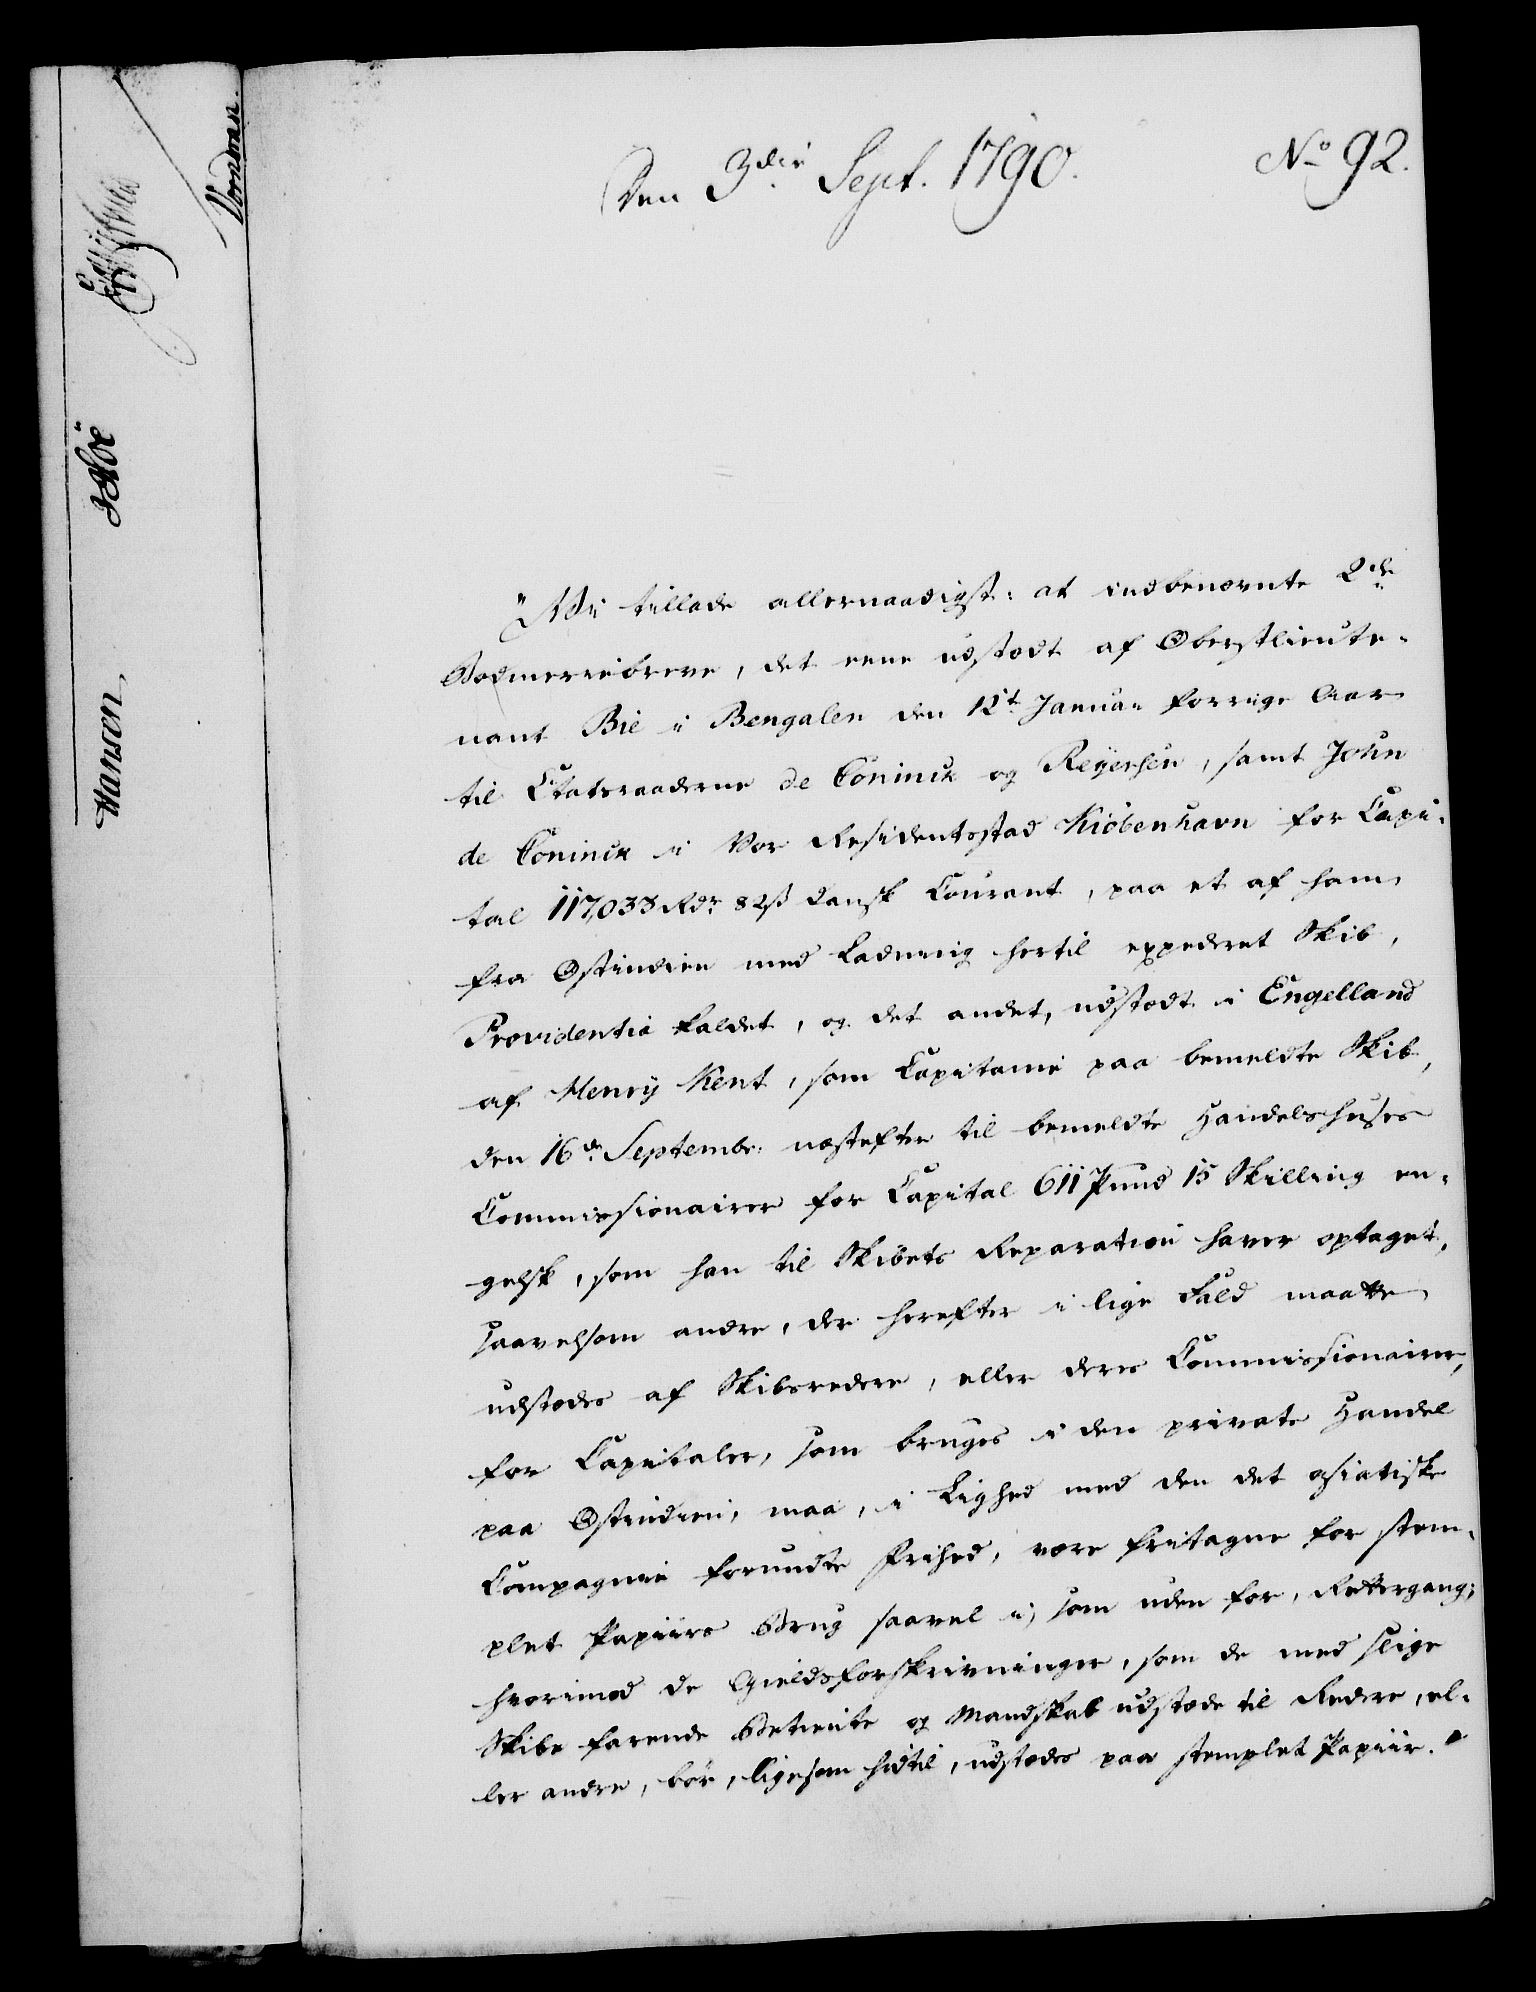 Den 3die Sept. 1790.
No 92.
"Vi tillade allernaadigst: at indbenævnte 2de
Bodmeriebreve, det eene udstædt af Oberstlieute-
nant Bie i Bengalen den 12t Januar forrige Aar
til Etatsraaderne de Coninck og Reÿersen, samt John
de Coninck i Vor Residentsstad Kiöbenhavn for Capi-
tal 117,033 Rdr 82 ß dansk Courant, paa et af ham
fra Ostindien med Ladning hertil expederet Skib,
Providentia kaldet, og det andet, udstædt i Engelland
af Henrÿ Kent, som Capitaine paa bemeldte Skib,
den 16de Septembr. næstefter til bemeldte Handelshuses
Commissionairer for Capital 611 Pund 15 Skilling en-
gelsk, som han til Skibets Reparation haver optaget,
saavelsom andre, der herefter i lige Fald maatte
udstædes af Skibsredere, eller deres Commissionairer,
for Capitaler, som bruges i den private Handel
paa Ostindien, maa, i Lighed med den det asiatiske
Compagnie forundte Frihed, være fritagne for stem-
plet Papiirs Brug saavel i, som uden for, Rettergang;
hvorimod de Gieldsforskrivninger, som de med slige
Skibe farende Betiente og Mandskab udstæde til Redere, el-
ler andre, bör, ligesom hidtil, udstædes paa stemplet Papiir."
Hansen,
Höe
Vornman.